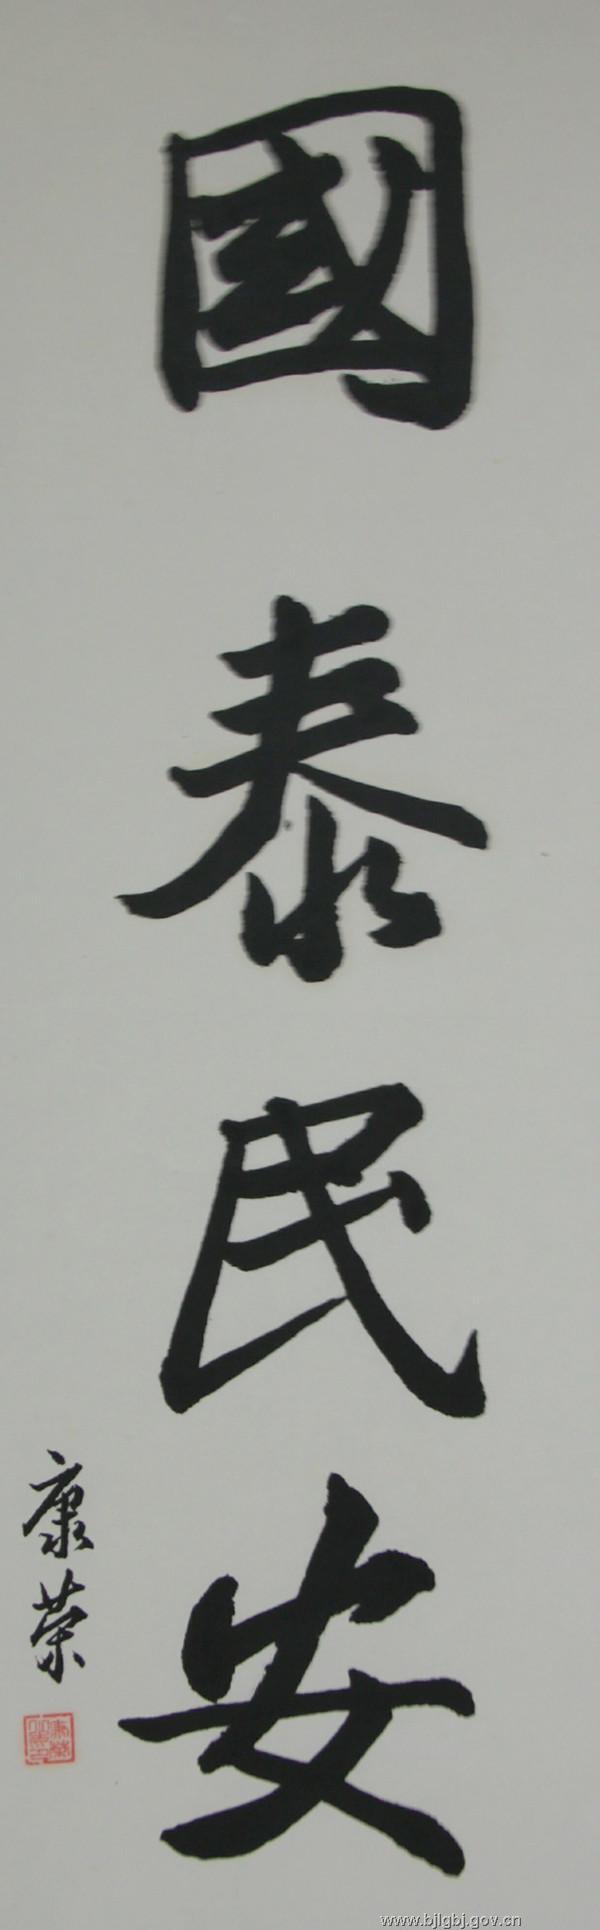 國泰民安
康荣
www.bjlgbj.gov.cn